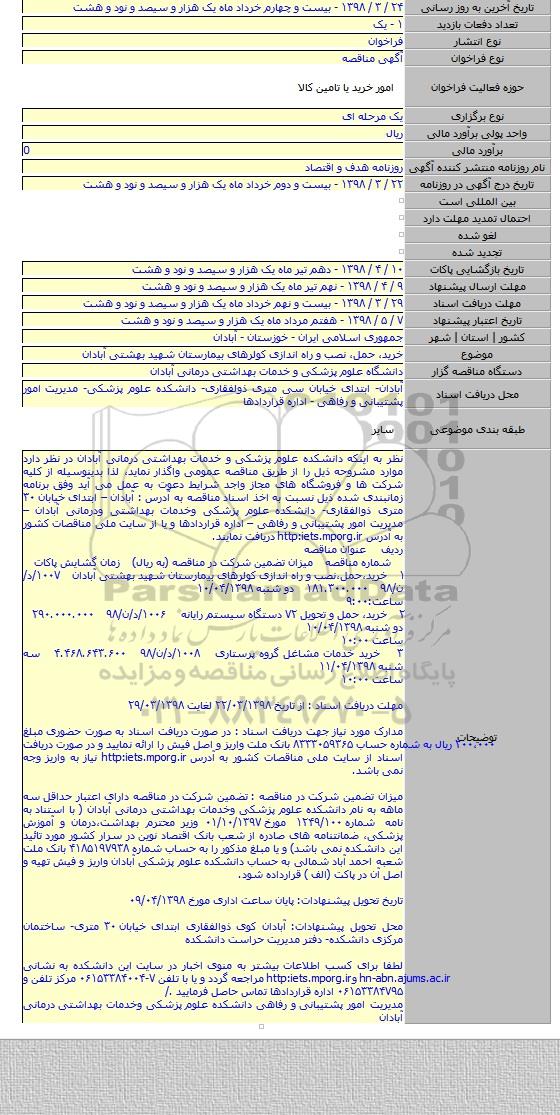 تاریخ آخرین به روز رسانی ۲۴ / ۳ / ۱۳۹۸ - بیست و چهارم خرداد ماه یک هزار و سیصد و نود و هشت
تعداد دفعات بازدید ۱ - یک
نوع انتشار فراخوان
نوع فراخوان آگهی مناقصه
حوزه فعالیت فراخوان امور خرید یا تامین کالا
نوع برگزاری یک مرحله ای
واحد پولی برآورد مالی ریال
برآورد مالی 0
نام روزنامه منتشر کننده آگهی روزنامه هدف و اقتصاد
تاریخ درج آگهی در روزنامه ۲۲ / ۳ / ۱۳۹۸ - بیست و دوم خرداد ماه یک هزار و سیصد و نود و هشت
بین المللی است
احتمال تمدید مهلت دارد
لغو شده
تجدید شده
تاریخ بازگشایی پاکات ۱۰ / ۴ / ۱۳۹۸ - دهم تیر ماه یک هزار و سیصد و نود و هشت
مهلت ارسال پیشنهاد ۹ / ۴ / ۱۳۹۸ - نهم تیر ماه یک هزار و سیصد و نود و هشت
مهلت دریافت اسناد ۲۹ / ۳ / ۱۳۹۸ - بیست و نهم خرداد ماه یک هزار و سیصد و نود و هشت
تاریخ اعتبار پیشنهاد ۷ / ۵ / ۱۳۹۸ - هفتم مرداد ماه یک هزار و سیصد و نود و هشت
کشور | استان | شهر جمهوری اسلامی ایران - خوزستان - آبادان
موضوع خرید، حمل، نصب و راه اندازی کولرهای بیمارستان شهید بهشتی آبادان
دستگاه مناقصه گزار دانشگاه علوم پزشکی و خدمات بهداشتی درمانی آبادان
محل دریافت اسناد آبادان- ابتدای خیابان سی متری ذولفقاری- دانشکده علوم پزشکی- مدیریت امور
پشتیبانی و رفاهی - اداره قراردادها
طبقه بندی موضوعی سایر
توضیحات
نظر به اینکه دانشکده علوم پزشکی و خدمات بهداشتی درمانی آبادان در نظر دارد
موارد مشروحه ذیل را از طریق مناقصه عمومی واگذار نماید، لذا بدینوسیله از کلیه
شرکت ها و فروشگاه های مجاز واجد شرایط دعوت به عمل می آید وفق برنامه
زمانبندی شده ذیل نسبت به اخذ اسناد مناقصه به آدرس : آبادان – ابتدای خیابان ۳۰
متری ذوالفقاری- دانشکده علوم پزشکی وخدمات بهداشتی ودرمانی آبادان –
مدیریت امور پشتیبانی و رفاهی – اداره قراردادها و یا از سایت ملی مناقصات کشور
به آدرس http:iets.mporg.ir دریافت نمایند.
ردیف عنوان مناقصه
شماره مناقصه میزان تضمین شرکت در مناقصه (به ریال) زمان گشایش پاکات
۱ خرید،حمل،نصب و راه اندازی کولرهای بیمارستان شهید بهشتی آبادان ۱۰۰۷/د/
ن/۹۸ ۱۸۱.۳۰۰.۰۰۰ دو شنبه ۱۰/۰۴/۱۳۹۸
ساعت:۹:۰۰
۲ خرید، حمل و تحویل ۷۲ دستگاه سیستم رایانه ۱۰۰۶/د/ن/۹۸ ۲۹۰.۰۰۰.۰۰۰
دو شنبه ۱۰/۰۴/۱۳۹۸
ساعت ۱۰:۰۰
۳ خرید خدمات مشاغل گروه پرستاری ۱۰۰۸/د/ن/۹۸ ۴.۴۶۸.۶۴۳.۶۰۰ سه
شنبه ۱۱/۰۴/۱۳۹۸
ساعت ۱۰:۰۰
مهلت دریافت اسناد : از تاریخ ۲۲/۰۳/۱۳۹۸ لغایت ۲۹/۰۳/۱۳۹۸
مدارک مورد نیاز جهت دریافت اسناد : در صورت دریافت اسناد به صورت حضوری مبلغ
۲۰۰.۰۰۰ ریال به شماره حساب ۸۳۳۳۰۵۹۳۶۵ بانک ملت واریز و اصل فیش را ارائه نمایید و در صورت دریافت
اسناد از سایت ملی مناقصات کشور به آدرس http:iets.mporg.ir نیاز به واریز وجه
نمی باشد.
میزان تضمین شرکت در مناقصه : تضمین شرکت در مناقصه دارای اعتبار حداقل سه
ماهه به نام دانشکده علوم پزشکی وخدمات بهداشتی درمانی آبادان ( با استناد به
نامه شماره ۱۲۴۹/۱۰۰ مورخ ۰۱/۱۰/۱۳۹۷ وزیر محترم بهداشت،درمان و آموزش
پزشکی، ضمانتنامه های صادره از شعب بانک اقتصاد نوین در سرار کشور مورد تائید
این دانشکده نمی باشد) و یا مبلغ مذکور را به حساب شماره ۴۱۸۵۱۹۷۹۳۸ بانک ملت
شعبه احمد آباد شمالی به حساب دانشکده علوم پزشکی آبادان واریز و فیش تهیه و
اصل آن در پاکت (الف ) قرارداده شود.
تاریخ تحویل پیشنهادات: پایان ساعت اداری مورخ ۰۹/۰۴/۱۳۹۸
محل تحویل پیشنهادات: آبادان کوی ذوالفقاری ابتدای خیابان ۳۰ متری- ساختمان
مرکزی دانشکده- دفتر مدیریت حراست دانشکده
لطفا برای کسب اطلاعات بیشتر به منوی اخبار در سایت این دانشکده به نشانی
hn-abn.ajums.ac.ir و http:iets.mporg.ir مراجعه گردد و یا با تلفن ۷-۰۶۱۵۳۳۸۴۰۰۴ مرکز تلفن و
۰۶۱۵۳۳۸۴۷۹۵ اداره قراردادها تماس حاصل فرمایید ./
مدیریت امور پشتیبانی و رفاهی دانشکده علوم پزشکی وخدمات بهداشتی درمانی
آبادان
پایگاه اطلاع رسانی مناقصه و مزایده
۰۲۱-۸۸۳۴۹۶۷۰-۵